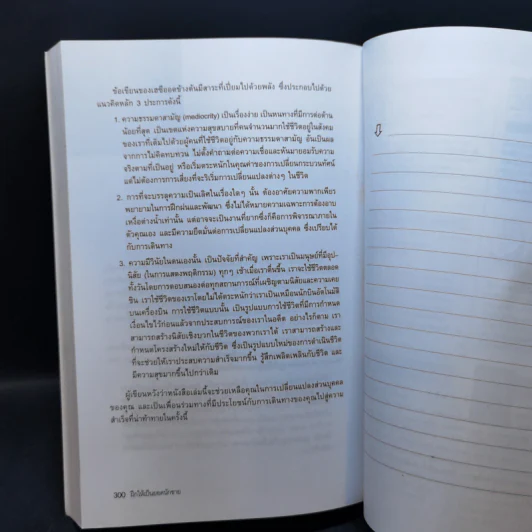 ข้อเขียนของเฮซีออดข้างต้นมีสาระที่เปี่ยมไปด้วยพลัง ซึ่งประกอบไปด้วย
แนวคิดหลัก 3 ประการดังนี้
1. ความธรรมดาสามัญ (mediocrity) เป็นเรื่องง่าย เป็นหนทางที่มีการต่อต้าน
น้อยที่สุด เป็นเขตแห่งความสุขสบายที่คนจำนวนมากใช้ชีวิตอยู่ในสังคม
ของเราที่เต็มไปด้วยผู้คนที่ใช้ชีวิตอยู่กับความธรรมดาสามัญ อันเป็นผล
จากการไม่คิดทบทวน ไม่ตั้งคำถามต่อความเชื่อและหันมายอมรับความ
จริงตามที่เป็นอยู่ หรือเริ่มตระหนักในคุณค่าของการเปลี่ยนกระบวนทัศน์
แต่ไม่ต้องการการเสี่ยงที่จะริเริ่มการเปลี่ยนแปลงต่างๆ ในชีวิต
2. การที่จะบรรลุความเป็นเลิศในเรื่องใดๆ นั้น ต้องอาศัยความพากเพียร
พยายามในการฝึกฝนและพัฒนา ซึ่งไม่ได้หมายความเฉพาะการต้องอาบ
เหงื่อต่างน้ำเท่านั้น แต่อาจจะเป็นงานที่ยากซึ่งก็คือการพิจารณาภายใน
ตัวคุณเอง และมีความยึดมั่นต่อการเปลี่ยนแปลงส่วนบุคคล ซึ่งเปรียบได้
กับการเดินทาง
3. ความมีวินัยในตนเองนั้น เป็นปัจจัยที่สำคัญ เพราะเราเป็นมนุษย์ที่มีอุป-
นิสัย (ในการแสดงพฤติกรรม) ทุกๆ เช้าเมื่อเราตื่นขึ้น เราจะใช้ชีวิตตลอด
ทั้งวันโดยการตอบสนองต่อทุกสถานการณ์ที่เผชิญตามนิสัยและความเคย
ชิน เราใช้ชีวิตของเราโดยไม่ได้ตระหนักว่าเราเป็นเหมือนนักบินอัตโนมัติ
บนเครื่องบิน การใช้ชีวิตแบบนั้น เป็นรูปแบบการใช้ชีวิตที่มีการกำหนด
เงื่อนไขไว้ก่อนแล้วจากประสบการณ์ของเราในอดีต อย่างไรก็ตาม เรา
สามารถสร้างนิสัยเชิงบวกในชีวิตของพวกเราได้ เราสามารถสร้างและ
กำหนดโครงสร้างใหม่ให้กับชีวิต ซึ่งเป็นรูปแบบใหม่ของการดำเนินชีวิต
ที่จะช่วยให้เราประสบความสำเร็จมากขึ้น รู้สึกเพลิดเพลินกับชีวิต และ
มีความสุขมากขึ้นไปกว่าเดิม
ผู้เขียนหวังว่าหนังสือเล่มนี้จะช่วยเหลือคุณในการเปลี่ยนแปลงส่วนบุคคล
ของคุณ และเป็นเพื่อนร่วมทางที่มีประโยชน์กับการเดินทางของคุณไปสู่ความ
สำเร็จที่น่าท้าทายในครั้งนี้
300 ฝึกให้เป็นยอดนักขาย